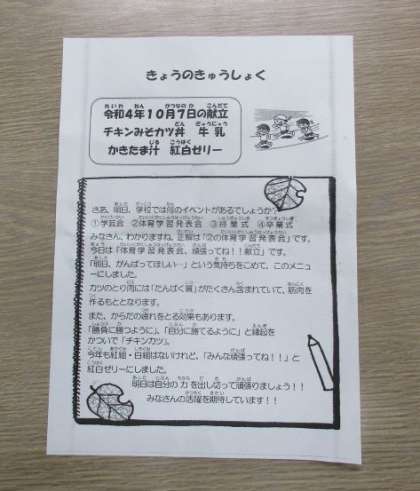 きょうのきゅうしょく
令和4年10月7日の献立
チキンみそカツ丼 牛乳
かきたま汁 紅白ゼリー
さあ、明日、学校では何のイベントがあるでしょうか？
①学芸会 ②体育学習発表会 ③終業式 ④卒業式
みなさん、わかりますね。正解は「②の体育学習発表会」です。
今日は「体育学習発表会、頑張ってね！！献立」です。
「明日、がんばってほしい…」という気持ちをこめて、このメニュ
ーにしました。
カツのとり肉には「たんぱく質」がたくさん含まれていて、筋肉を
作るもととなります。
また、からだの疲れをとる効果もあります。
「勝負に勝つように」、「自分に勝てるように」と縁起を
かついで「チキンカツ」。
今年も紅組・白組はないけれど、「みんな頑張ってね！！」と
紅白ゼリーにしました。
明日は自分の力を出し切って頑張りましょう！！
みなさんの活躍を期待しています！！